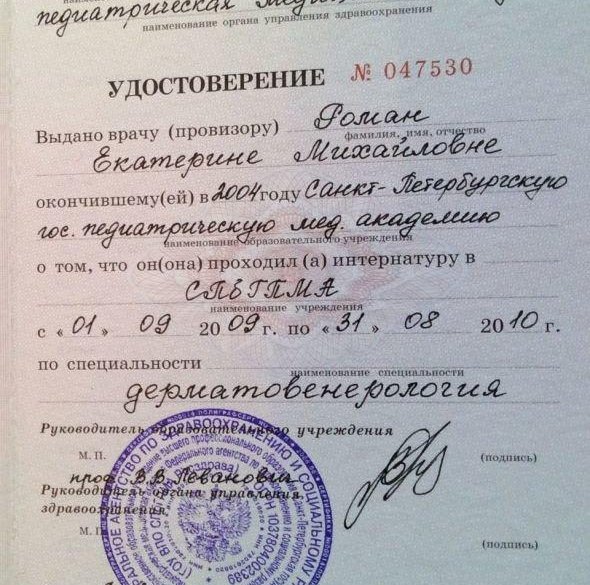 педиатрическая
наименование органа управления здравоохранения
УДОСТОВЕРЕНИЕ № 047530
Выдано врачу (провизору) Роман
фамилия, имя, отчество
Екатерине Михайловне
окончившему(ей) в 2004 году Санкт-Петербургскую
гос. педиатрическую мед. академию
наименование образовательного учреждения
о том, что он(она) проходил (а) интернатуру в
СПбГПМА
наименование учреждения
с « 01 » 09 2009 г. по « 31 » 08 2010 г.
по специальности
наименование специальности
дерматовенерология
Руководитель образовательного учреждения
М. П. (подпись)
проф. В.В. Леванович
Руководитель органа управления
здравоохранения
М. П. (подпись)
АГЕНТСТВО ПО ЗДРАВООХРАНЕНИЮ И СОЦИАЛЬНОМУ